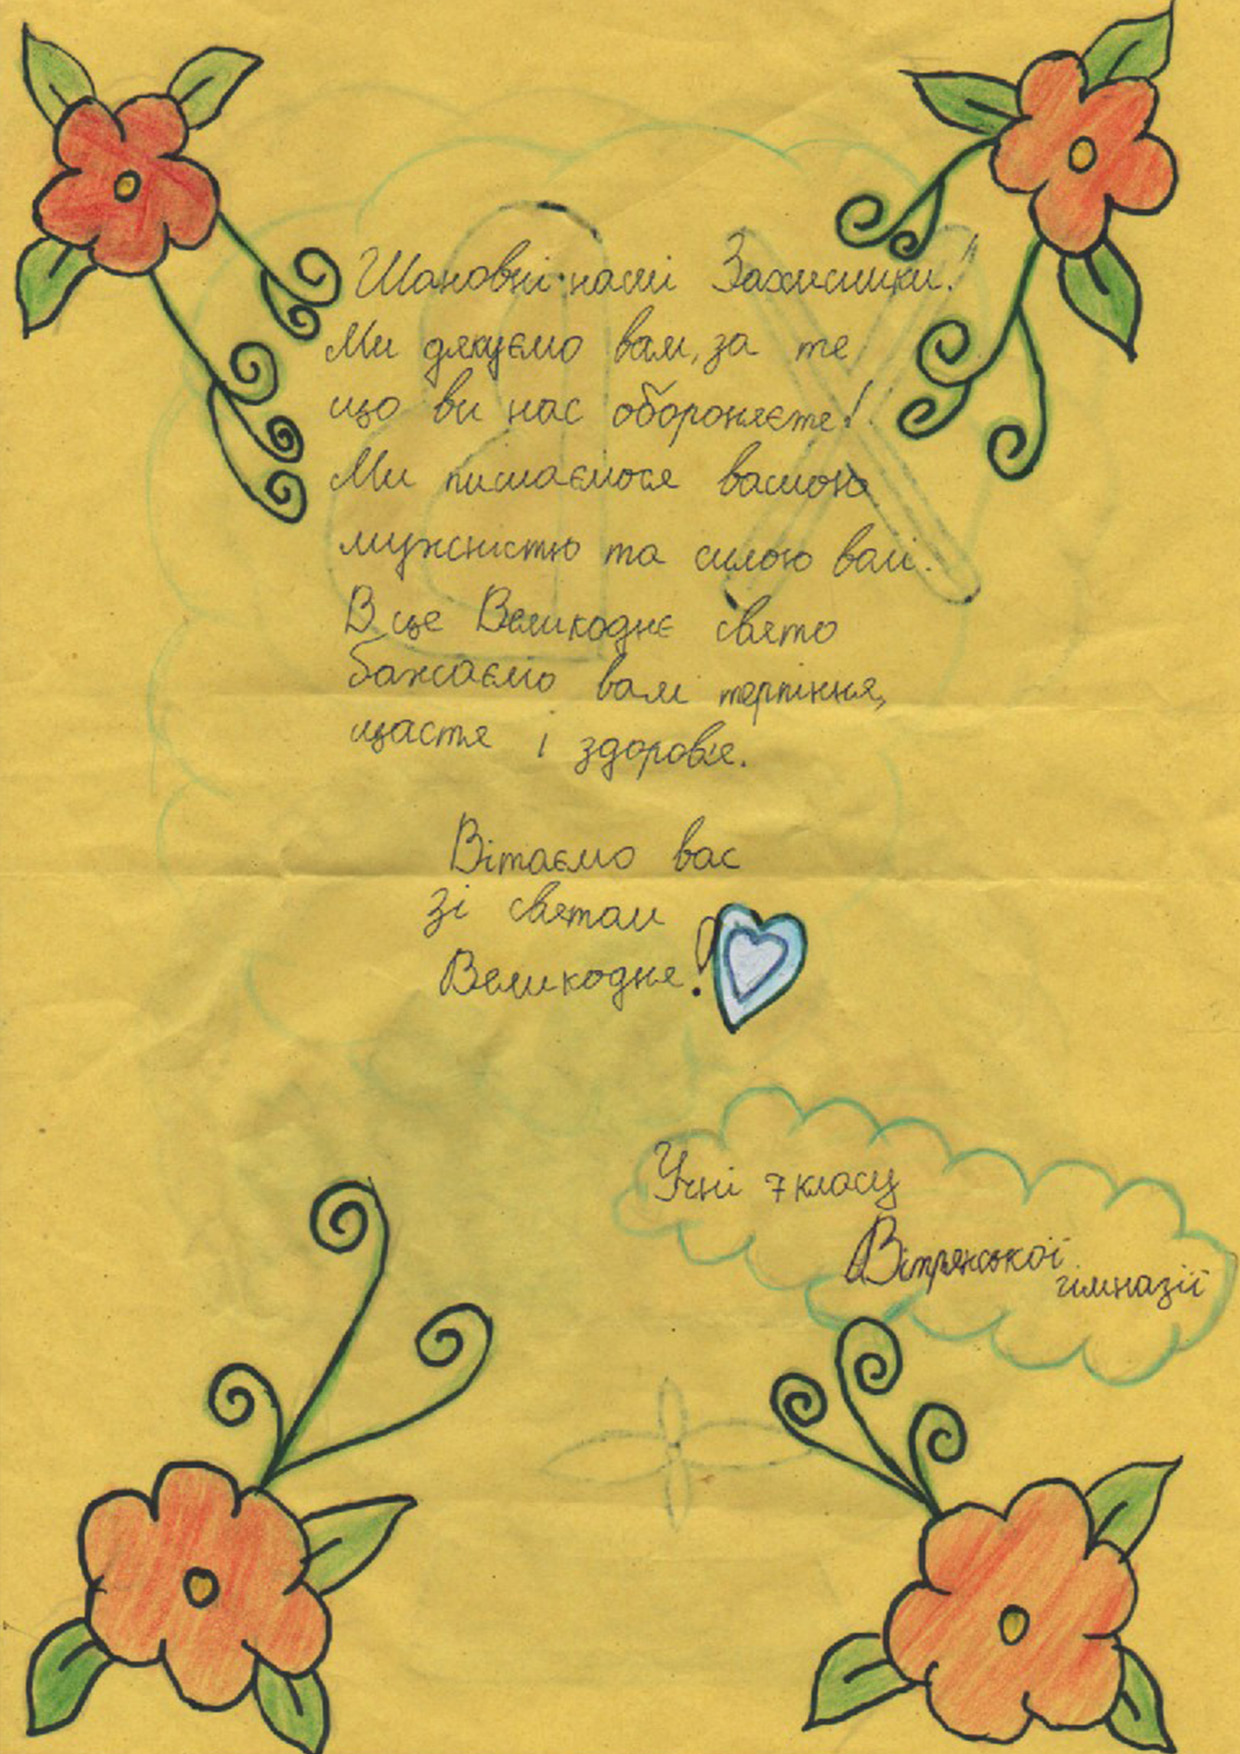 Шановні наші Захисники!
Ми дякуємо вам, за те
що ви нас обороняєте!
Ми пишаємося вашою
мужністю та силою волі.
В це Великоднє свято
бажаємо вам терпіння,
щастя і здоров'я.
Вітаємо вас
зі святом
Великодня!
Учні 7 класу
Вітрянської
гімназії